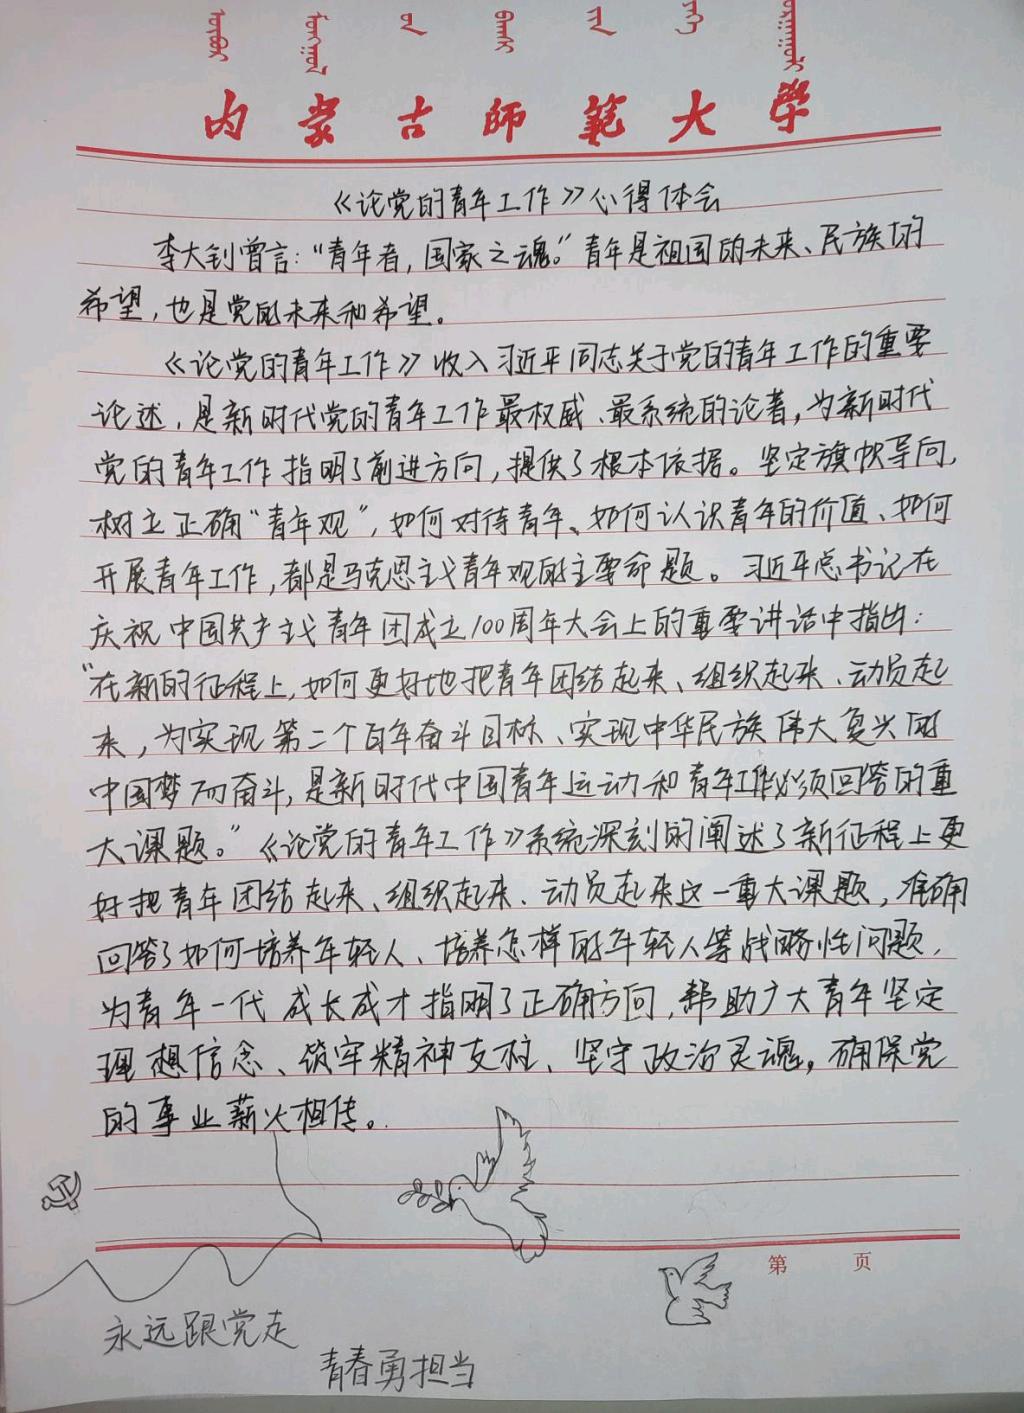 内蒙古师范大学
《论党的青年工作》心得体会
李大钊曾言：“青年者，国家之魂。”青年是祖国的未来、民族的
希望，也是党的未来和希望。
《论党的青年工作》收入习近平同志关于党的青年工作的重要
论述，是新时代党的青年工作最权威、最系统的论著，为新时代
党的青年工作指明了前进方向，提供了根本依据。坚定旗帜导向，
树立正确“青年观”，如何对待青年、如何认识青年的价值、如何
开展青年工作，都是马克思主义青年观的主要命题。习近平总书记在
庆祝中国共产主义青年团成立100周年大会上的重要讲话中指出：
“在新的征程上，如何更好地把青年团结起来、组织起来、动员起
来，为实现第二个百年奋斗目标、实现中华民族伟大复兴的
中国梦而奋斗，是新时代中国青年运动和青年工作必须回答的重
大课题。”《论党的青年工作》系统深刻的阐述了新征程上更
好把青年团结起来、组织起来、动员起来这一重大课题，准确
回答了如何培养年轻人、培养怎样的年轻人等战略性问题，
为青年一代成长成才指明了正确方向，帮助广大青年坚定
理想信念、筑牢精神支柱、坚守政治灵魂，确保党
的事业薪火相传。
第 页
永远跟党走
青春勇担当